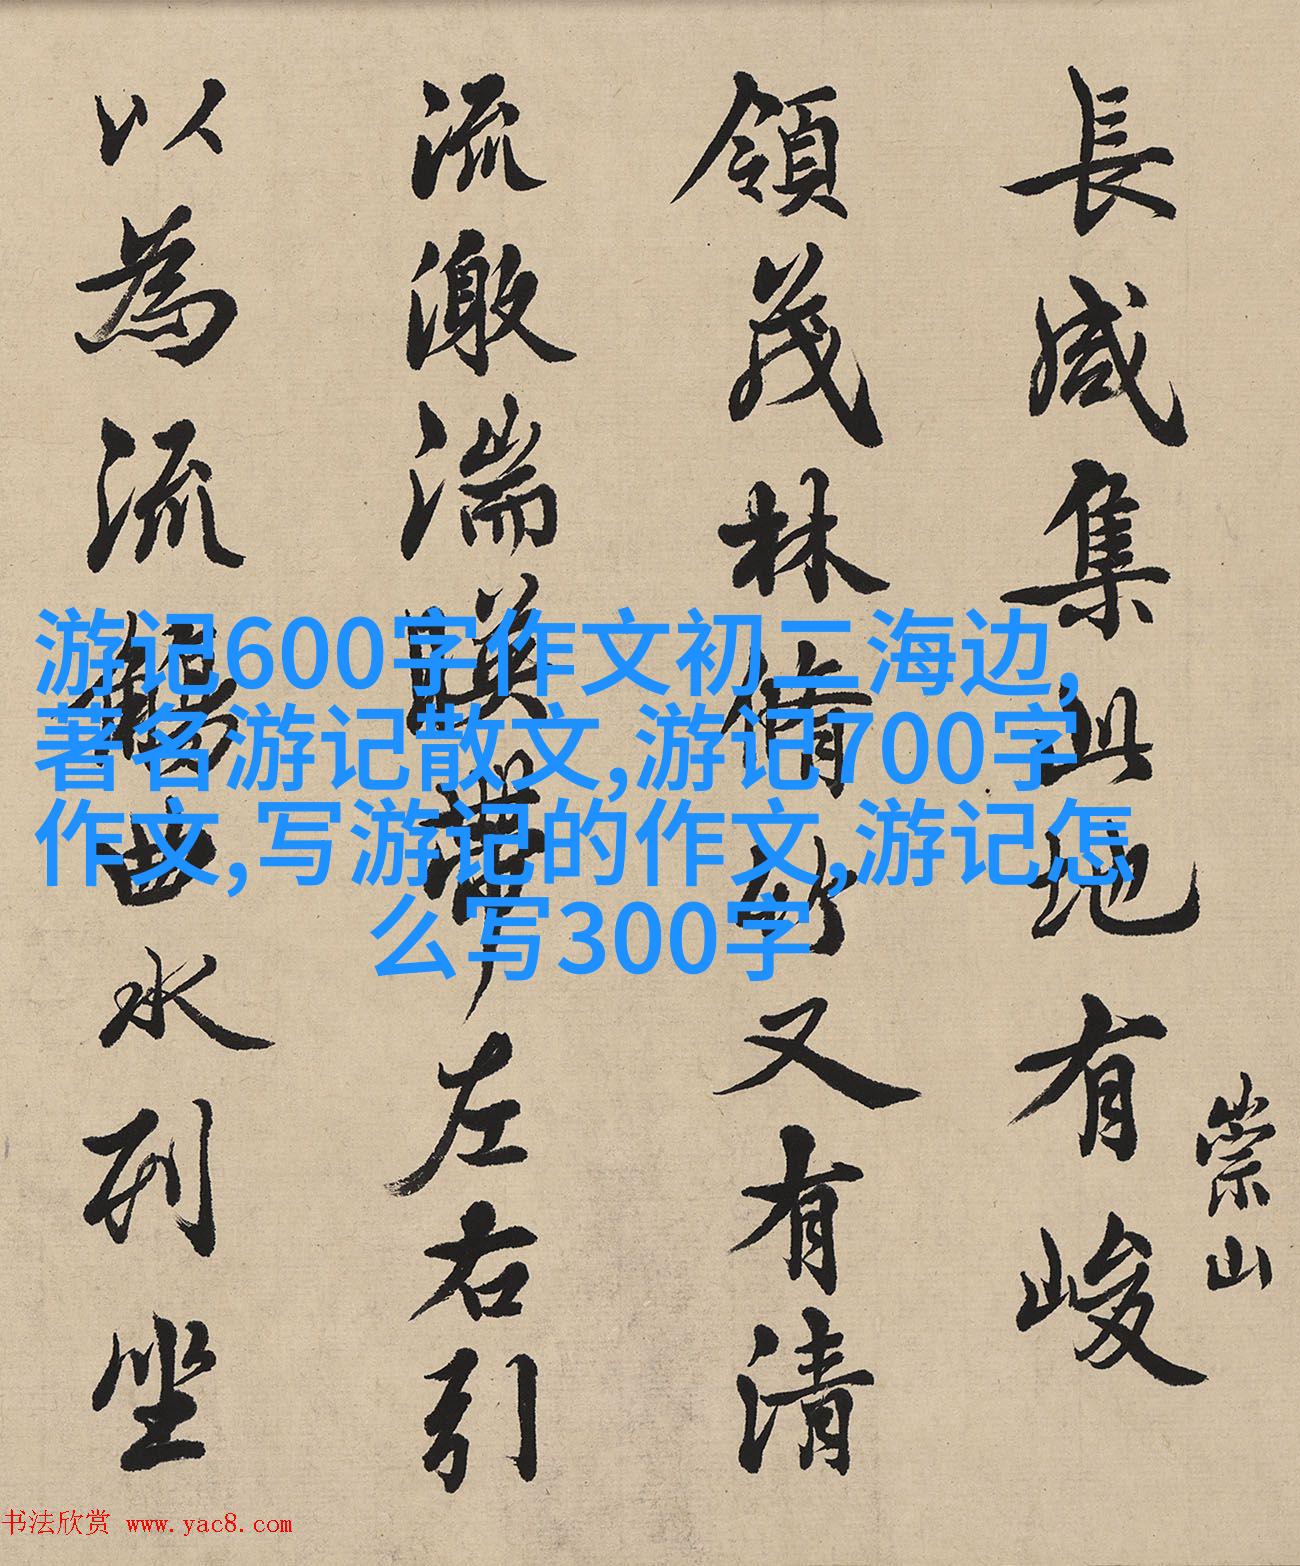 長咸集此地有峻
崇山
領茂林脩竹又有清
流激湍暎帶左右引
以為流觴曲水列坐
游记600字作文初二海边,
著名游记散文,游记700字
作文,写游记的作文,游记怎
么写300字
书法欣赏 www.yac8.com